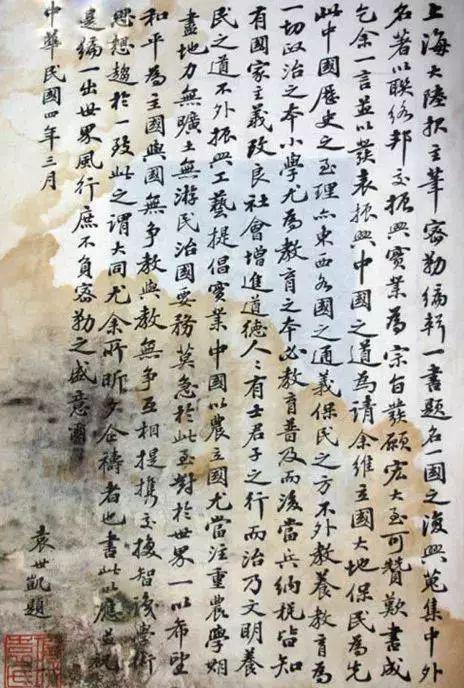 上海大陸报主筆密勒编輯一書題名一國之復興蒐集中外
名著以聯络邦交振興實業為宗旨發願宏大至可贊歎書成
乞余一言並以發表振興中國之道為請余維立國大地保民為先
此中國歷史之至理亦東西各國之通義保民之方不外教養教育為
一切政治之本小學尤為教育之本必教育普及而後當兵納税皆知
有國家主義改良社會增進道德人人有士君子之行而治乃文明養
民之道不外振興工藝提倡實業中國以農立國尤當注重農學期
盡地力無曠土無游民治國要務莫急於此至對於世界一以希望
和平為主國與國無争教與教無争互相提携交換智識學術
思想趨於一致此之謂大同尤余所昕夕企禱者也書此以應並祝
是编一出世界風行庶不負密勒之盛意爾
中華民國四年三月
袁世凱題